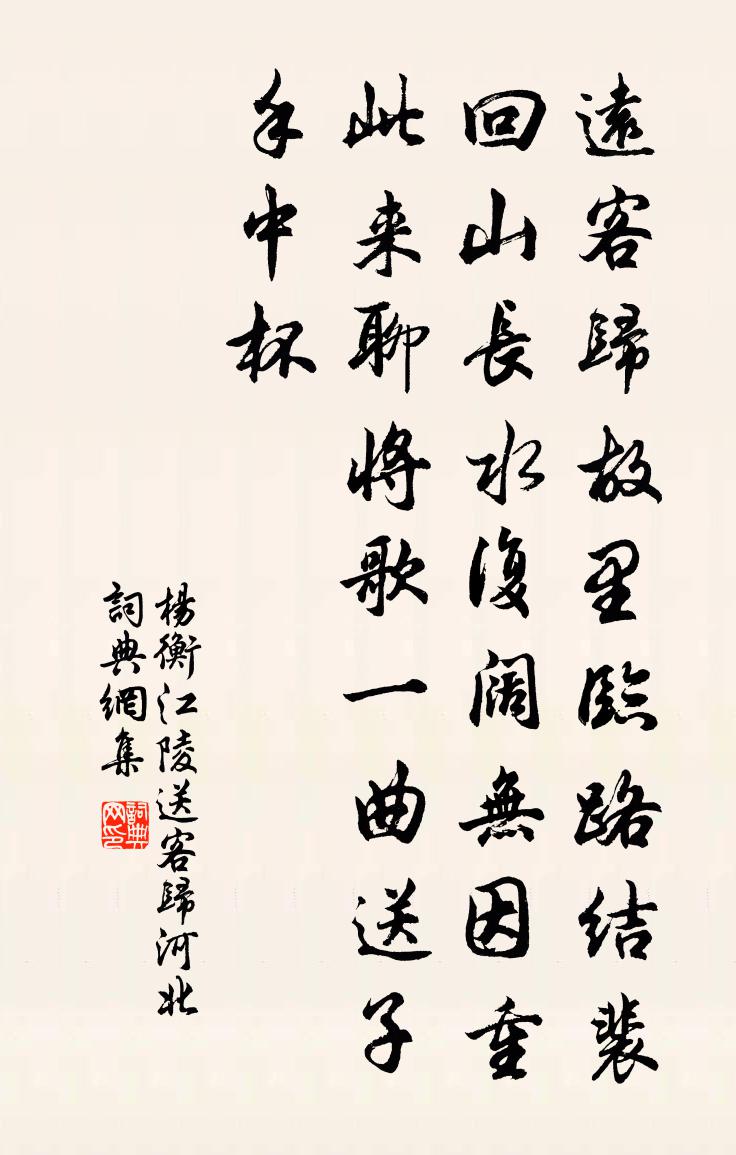 遠客歸故里臨路結裴
回山長水復阔無因重
此来聊將歌一曲送子
手中杯
楊衡江陵送客歸河北
詞典網集
詞典網印